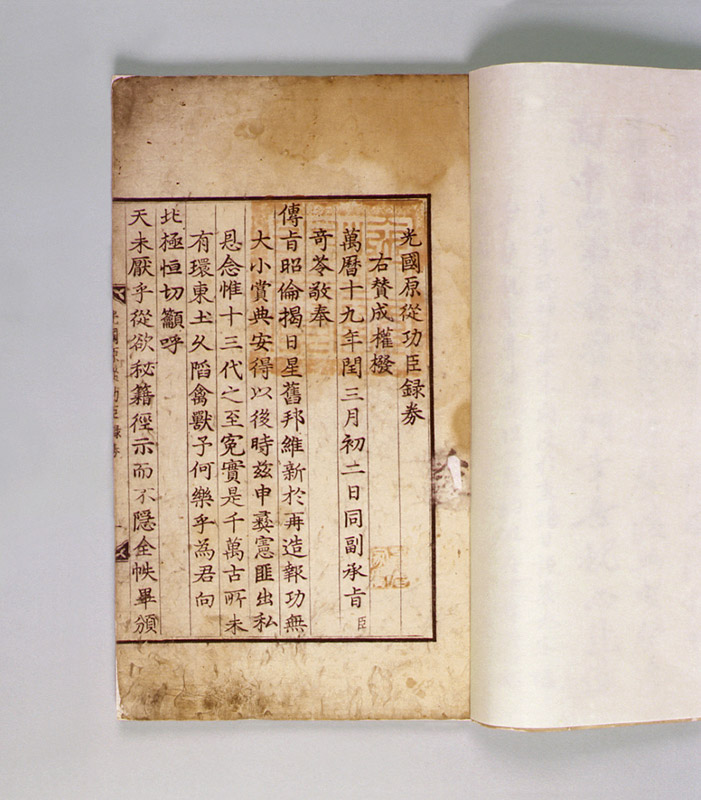 光國原從功臣録券
右賛成權橃
萬曆十九年閏三月初二日同副承旨臣
奇苓敬奉
傳旨昭倫揭日星舊邦維新於再造報功無
大小賞典安得以後時玆申彛憲匪出私
恩念惟十三代之至冤實是千萬古所未
有環東土久陷禽獸予何樂乎為君向
北極恒切籲呼
天未厭乎從欲秘籍徑示而不隠全帙畢頒